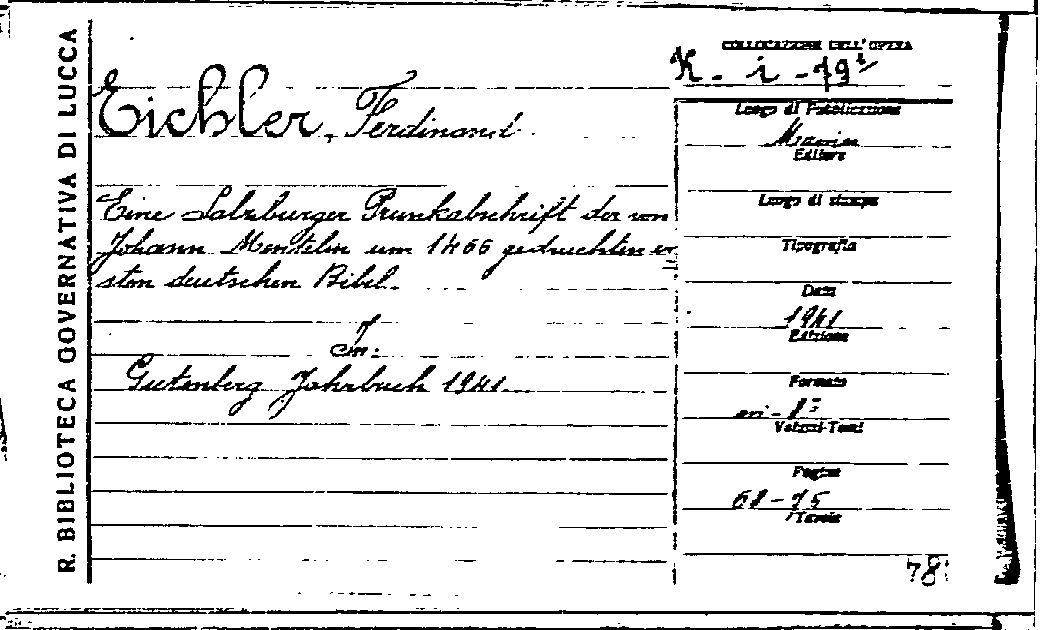 R. BIBLIOTECA GOVERNATIVA DI LUCCA
Eichler, Ferdinand
Eine Salzburger Prunkabschrift der von
Johann Mentelin um 1466 gedruckten er
sten deutschen Bibel.
In:
Gutenberg Jahrbuch 1941.
COLLOCAZIONE DELL'OPERA
K - i - 79
Luogo di Pubblicazione
Editore
Luogo di stampa
Tipografia
Data
1941
Edizione
Formato
Volumi-Tomi
Pagine
68-75
Tavole
78